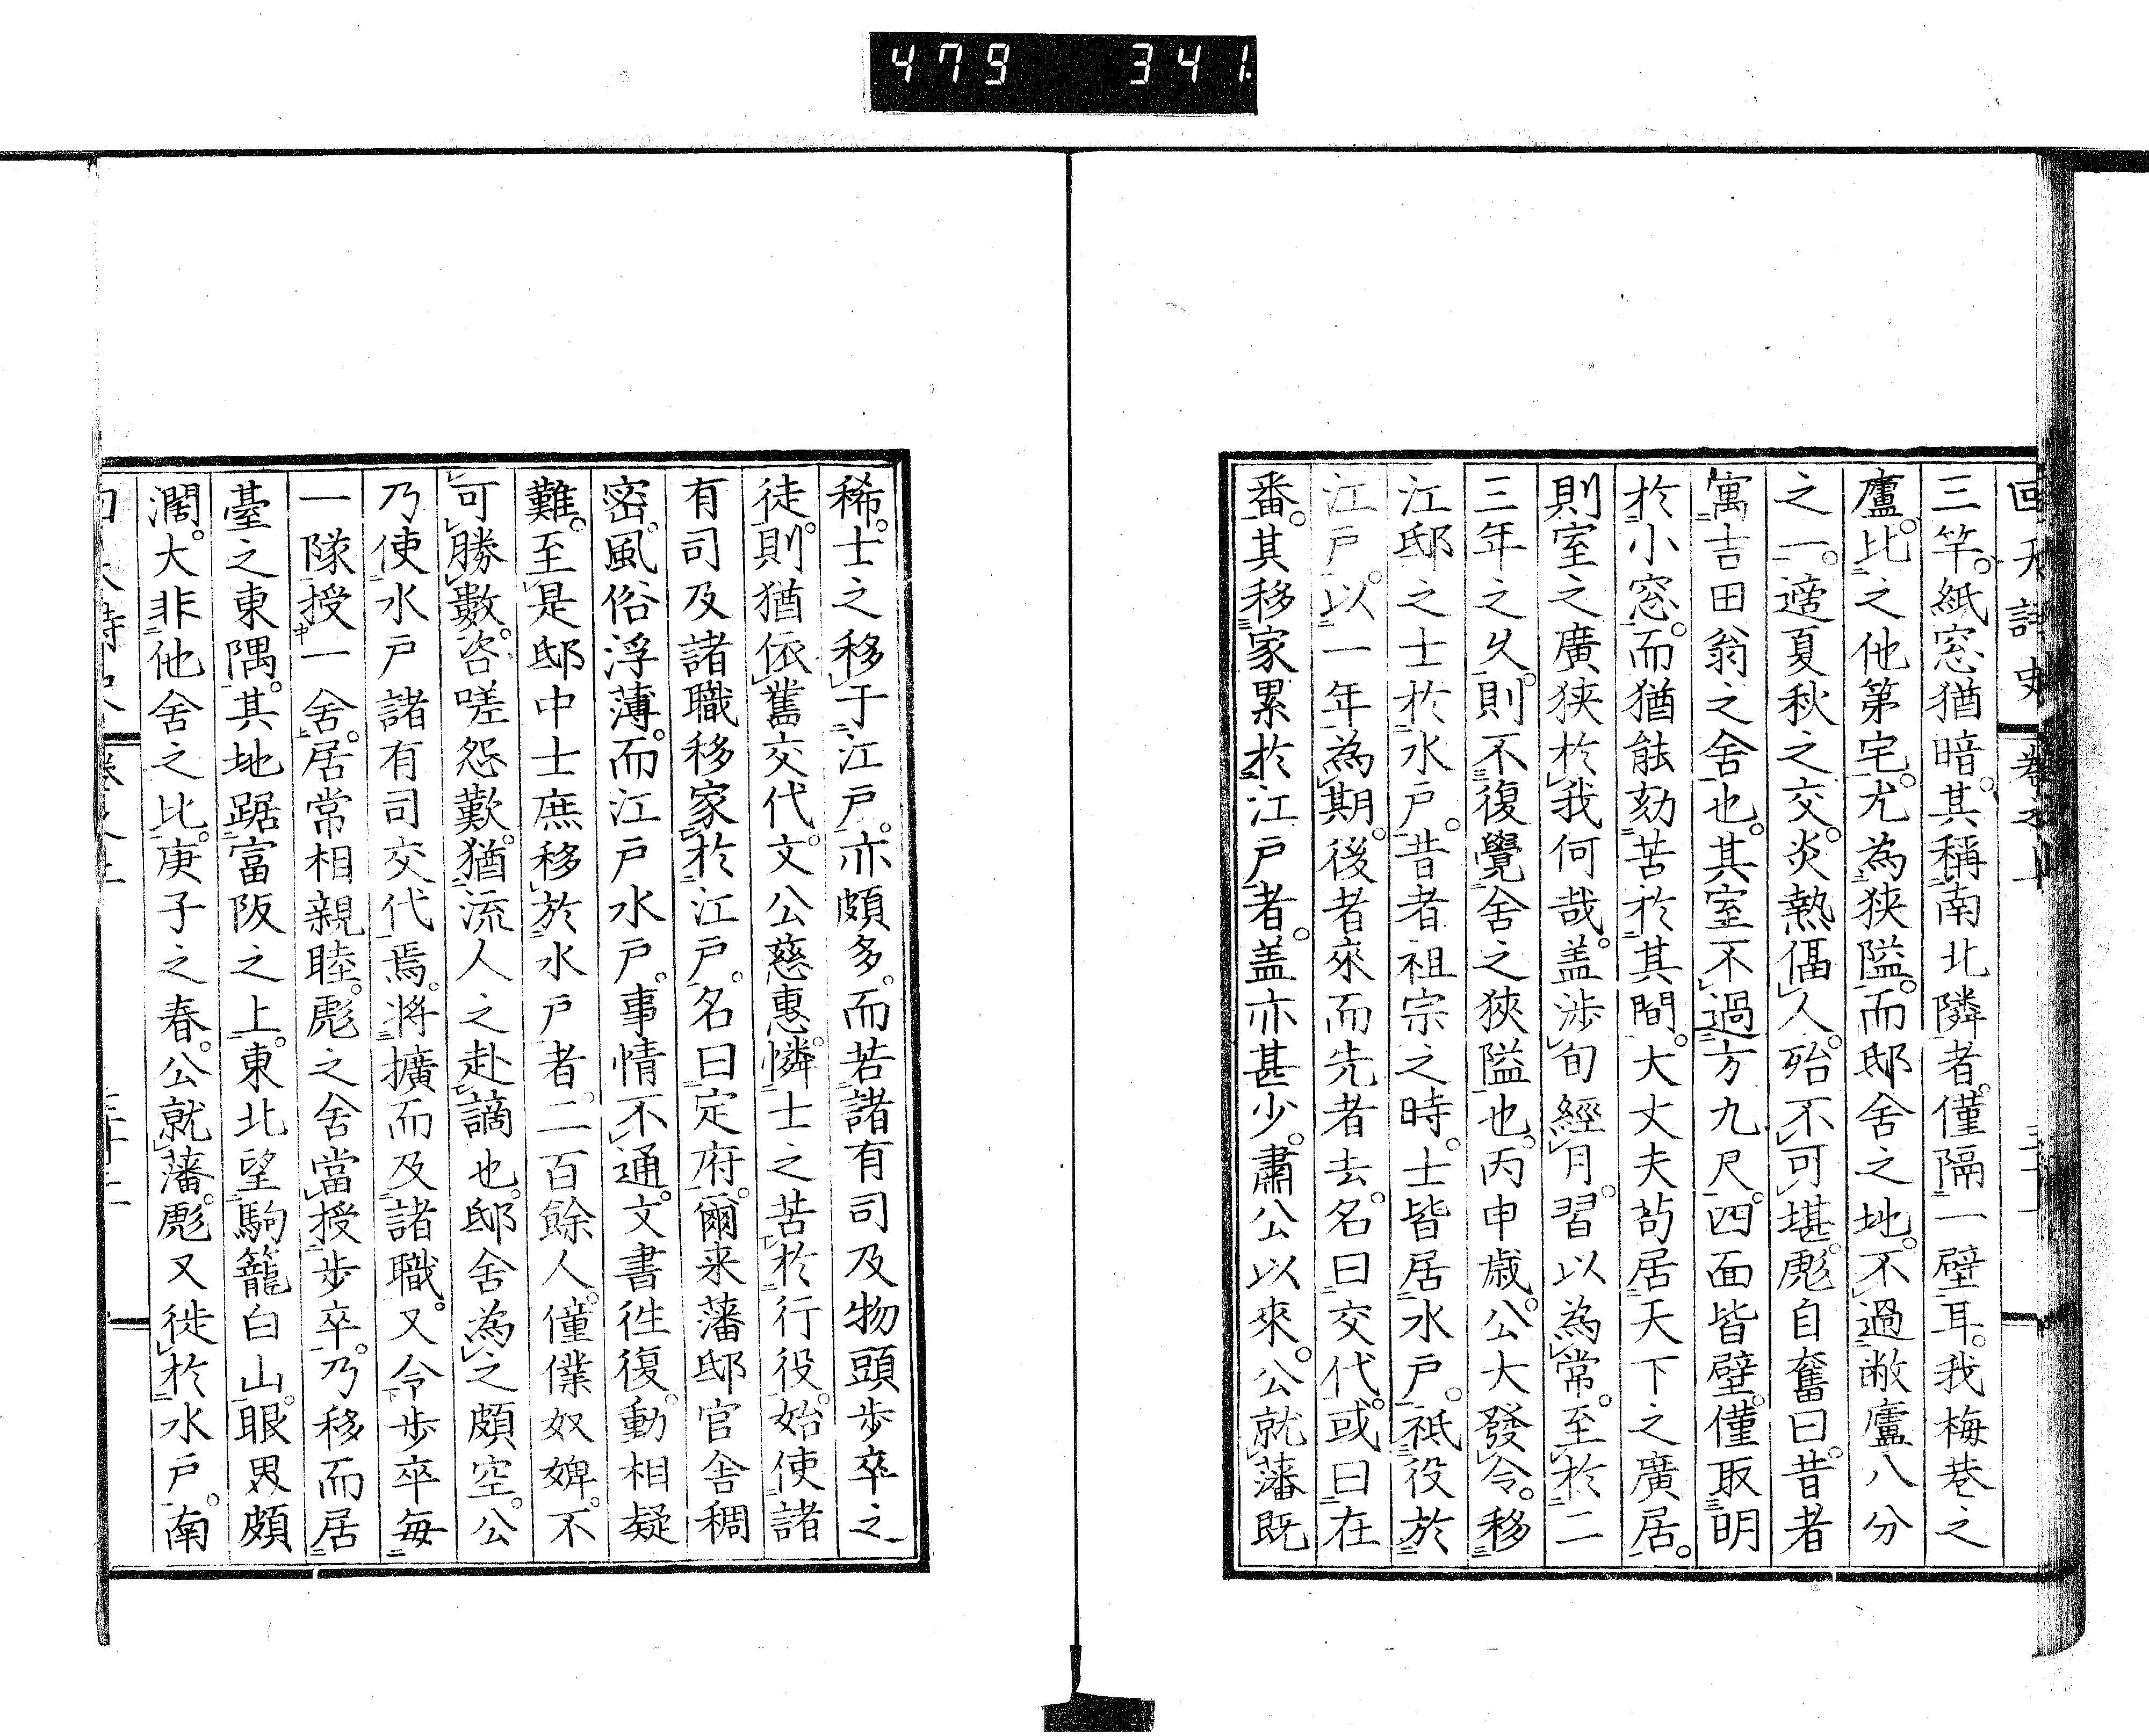 479 341
回天詩史 卷之上
三竿。紙窓猶暗。其稱南北隣者。僅隔一壁耳。我梅巷之
廬。比之他第宅。尤為狹隘。而邸舍之地。不過敝廬八分
之一。適夏秋之交。炎熱偪人。殆不可堪。彪自奮曰。昔者
寓吉田翁之舍也。其室不過方九尺。四面皆壁。僅取明
於小窓。而猶能刻苦於其間。大丈夫苟居天下之廣居。
則室之廣狹於我何哉。盖涉旬經月。習以為常。至於二
三年之久。則不復覺舍之狹隘也。丙申歳。公大發令。移
江邸之士於水戸。昔者祖宗之時。士皆居水戸。祗役於
江戸。以一年為期。後者來而先者去。名曰交代。或曰在
番。其移家累於江戸者。盖亦甚少。肅公以來。公就藩既
稀。士之移于江戸。亦頗多。而若諸有司及物頭歩卒之
徒。則猶依舊交代。文公慈惠。憐士之苦於行役。始使諸
有司及諸職移家於江戸。名曰定府。爾来藩邸官舍稠
密。風俗浮薄。而江戸水戸。事情不通。文書徃復。動相疑
難。至是邸中士庶移於水戸者。二百餘人。僮僕奴婢。不
可勝數。咨嗟怨歎。猶流人之赴謫也。邸舍為之頗空。公
乃使水戸諸有司交代焉。將擴而及諸職。又令歩卒毎
一隊授一舍。居常相親睦。彪之舍當授歩卒。乃移而居
臺之東隅。其地踞富阪之上。東北望駒籠白山。眼界頗
濶。大非他舍之比。庚子之春。公就藩。彪又徙於水戸。南